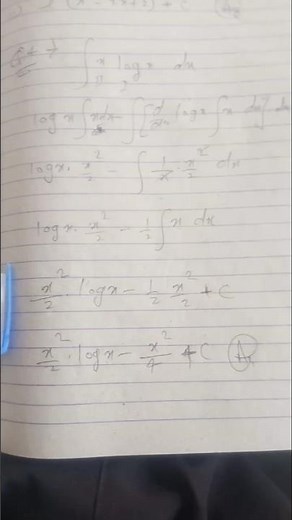 ∫ x log x dx
log x ∫ x dx - ∫ [ d/dx log x ∫ x dx ] dx
log x . x²/2 - ∫ 1/x x²/2 dx
log x . x²/2 - 1/2 ∫ x dx
x²/2 . log x - 1/2 x²/2 + C
x²/2 . log x - x²/4 + C